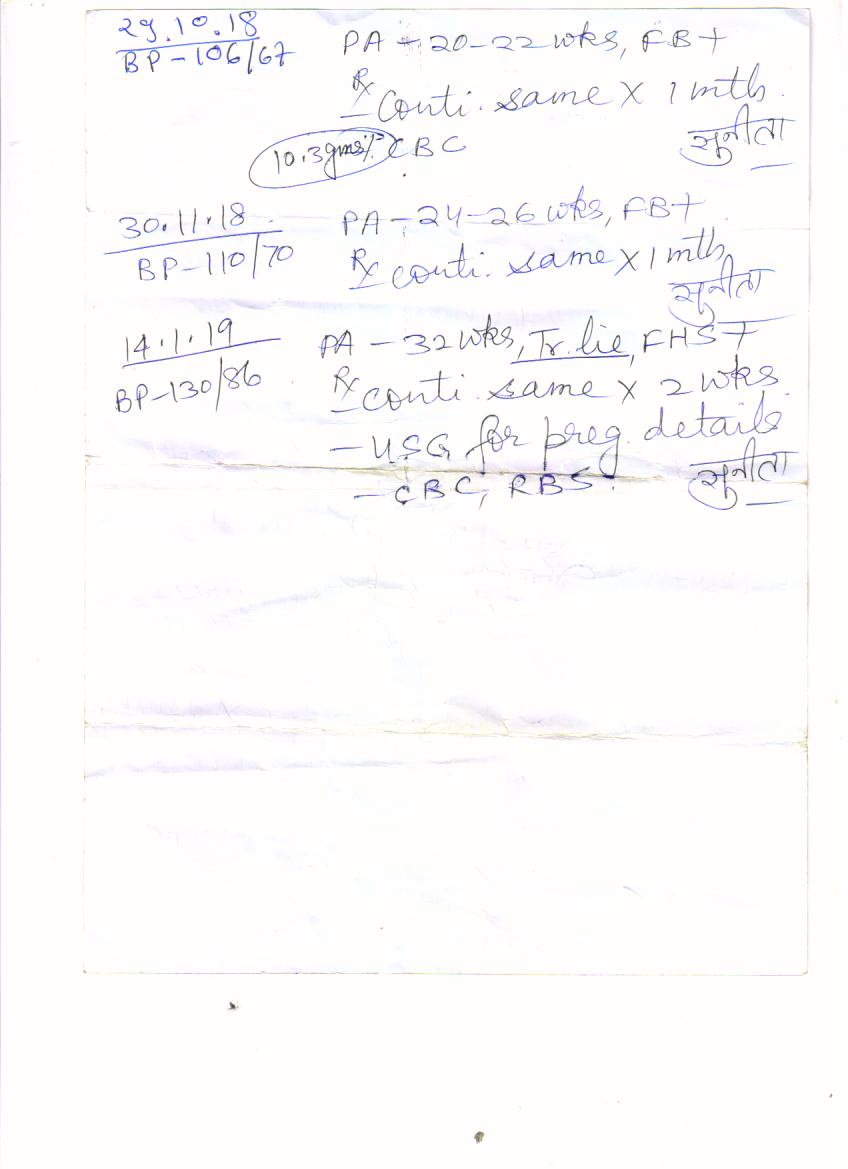 29.10.18 PA - 20-22 wks, FB+
BP-106/67
Rx conti. same x 1 mth.
10.3gms% CBC सुनीता
30.11.18 PA - 24-26 wks, FB+
BP-110/70 Rx conti. same x 1 mth
सुनीता
14.1.19 PA - 32 wks, Tr. lie, FHS+
BP-130/86 Rx conti. same x 2 wks
- USG for preg. details
- CBC, RBS. सुनीता